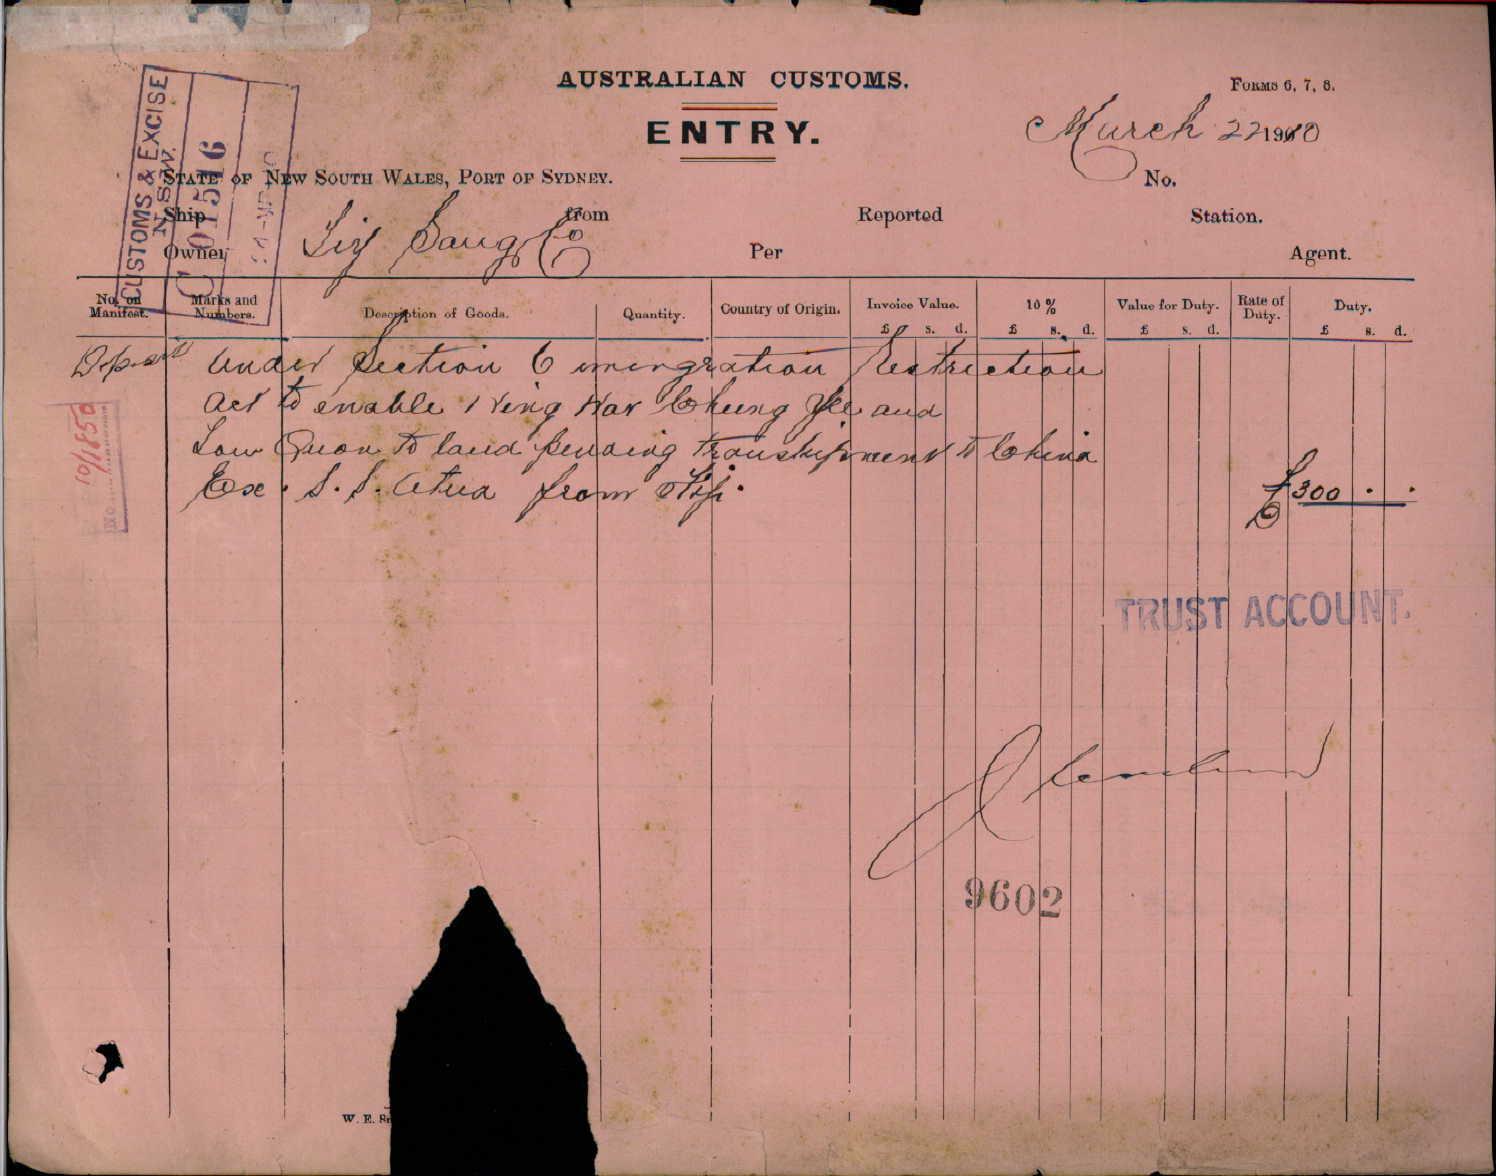 AUSTRALIAN CUSTOMS.
FORMS 6, 7, 8.
ENTRY.
March 22 1910
CUSTOMS & EXCISE
N.S.W.
C 01516
STATE OF NEW SOUTH WALES, PORT OF SYDNEY.
No.
Ship from Reported Station.
Owner Sang & Co Per Agent.
No. on Manifest. Marks and Numbers. Description of Goods. Quantity. Country of Origin. Invoice Value. 10 % Value for Duty. Rate of Duty. Duty.
£ s. d. £ s. d. £ s. d. £ s. d.
Deposit under Section 6 immigration Restriction
Act to enable War Cheung Yee and
Low Quon to land pending transhipment to China
Ex. S. S. Atua from Fiji.
£300 . .
10/1850
No.
TRUST ACCOUNT.
9602
W. E. Sm